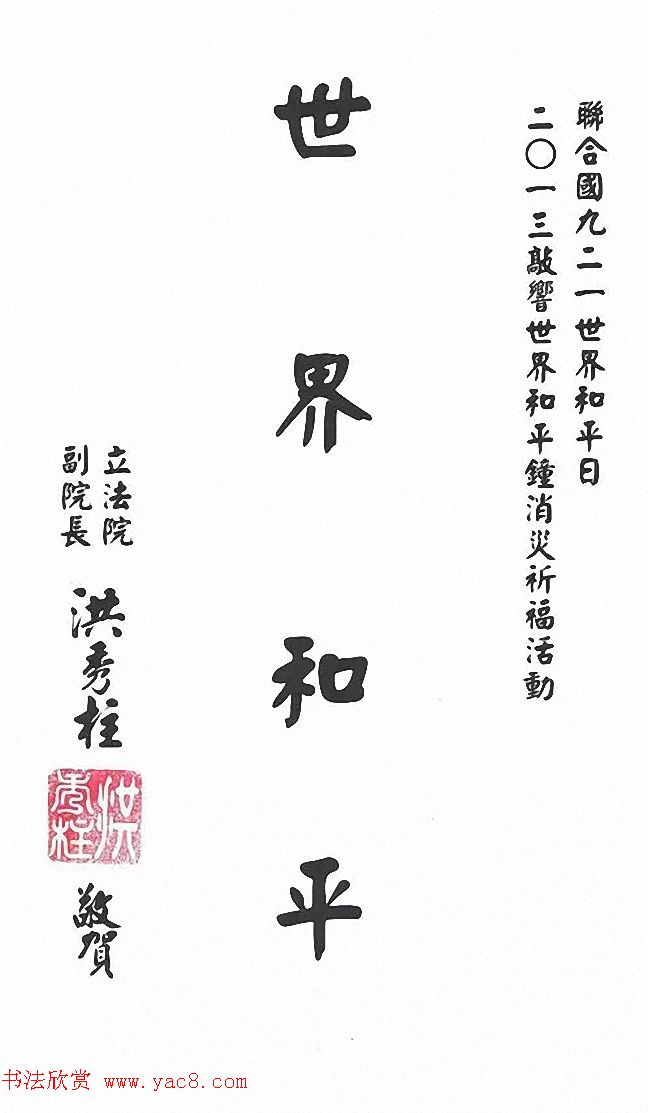 聯合國九二一世界和平日
二〇一三敲響世界和平鐘消災祈福活動
世界和平
立法院
副院長
洪秀柱
洪秀柱
敬賀
书法欣赏 www.yac8.com